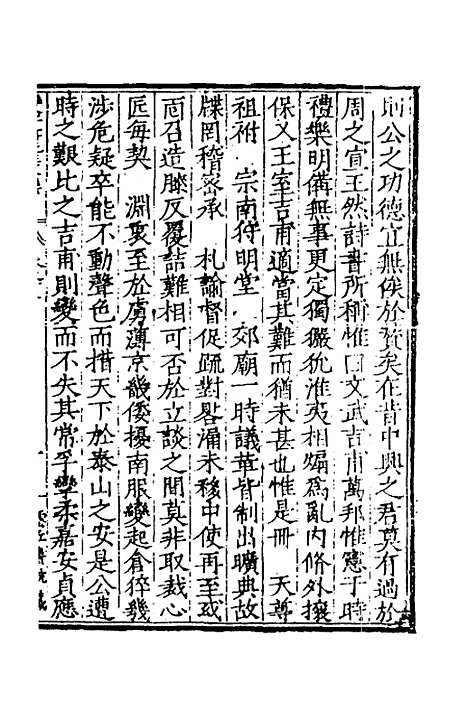 則公之功德宜無俟於贊矣在昔中興之君莫有過於
周之宣王然詩書所稱惟曰文武吉甫萬邦惟憲于時
禮樂明備無事更定獨玁狁淮夷相煽為亂內脩外攘
保乂王室吉甫適當其難而猶未甚也惟是冊 天尊
祖祔 宗南狩明堂 郊廟一時議華皆制出曠典故
牒罔稽密承 札諭督促疏對畧涌未移中使再至或
面召造膝反覆詰難相可否於立談之間莫非取裁心
匠每契 淵衷至於虜薄京畿倭擾南服變起倉猝幾
涉危疑卒能不動聲色而措天下於泰山之安是公遭
時之艱比之吉甫則變而不失其常孚孿柔嘉安貞應